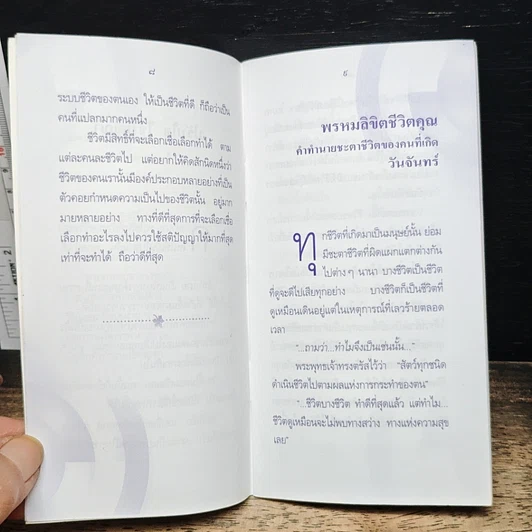 ๘
ระบบชีวิตของตนเอง ให้เป็นชีวิตที่ดี ก็ถือว่าเป็น
คนที่แปลกมากคนหนึ่ง
ชีวิตมีสิทธิ์ที่จะเลือกเชื่อเลือกทำได้ ตาม
แต่ละคนละชีวิตไป แต่อยากให้คิดสักนิดหนึ่งว่า
ชีวิตของคนเรานั้นมีองค์ประกอบหลายอย่างที่เป็น
ตัวคอยกำหนดความเป็นไปของชีวิตนั้น อยู่มาก
มายหลายอย่าง ทางที่ดีที่สุดการที่จะเลือกเชื่อ
เลือกทำอะไรลงไปควรใช้สติปัญญาให้มากที่สุด
เท่าที่จะทำได้ ถือว่าดีที่สุด
๙
พรหมลิขิตชีวิตคุณ
คำทำนายชะตาชีวิตของคนที่เกิด
วันจันทร์
ทุกชีวิตที่เกิดมาเป็นมนุษย์นั้น ย่อม
มีชะตาชีวิตที่ผิดแผกแตกต่างกัน
ไปต่าง ๆ นานา บางชีวิตเป็นชีวิต
ที่ดูจะดีไปเสียทุกอย่าง บางชีวิตก็เป็นชีวิตที่
ดูเหมือนเดินอยู่แต่ในเหตุการณ์ที่เลวร้ายตลอด
เวลา
"...ถามว่า...ทำไมจึงเป็นเช่นนั้น..."
พระพุทธเจ้าทรงตรัสไว้ว่า "สัตว์ทุกชนิด
ดำเนินชีวิตไปตามผลแห่งการกระทำของตน"
"...ชีวิตบางชีวิต ทำดีที่สุดแล้ว แต่ทำไม...
ชีวิตดูเหมือนจะไม่พบทางสว่าง ทางแห่งความสุข
เลย"